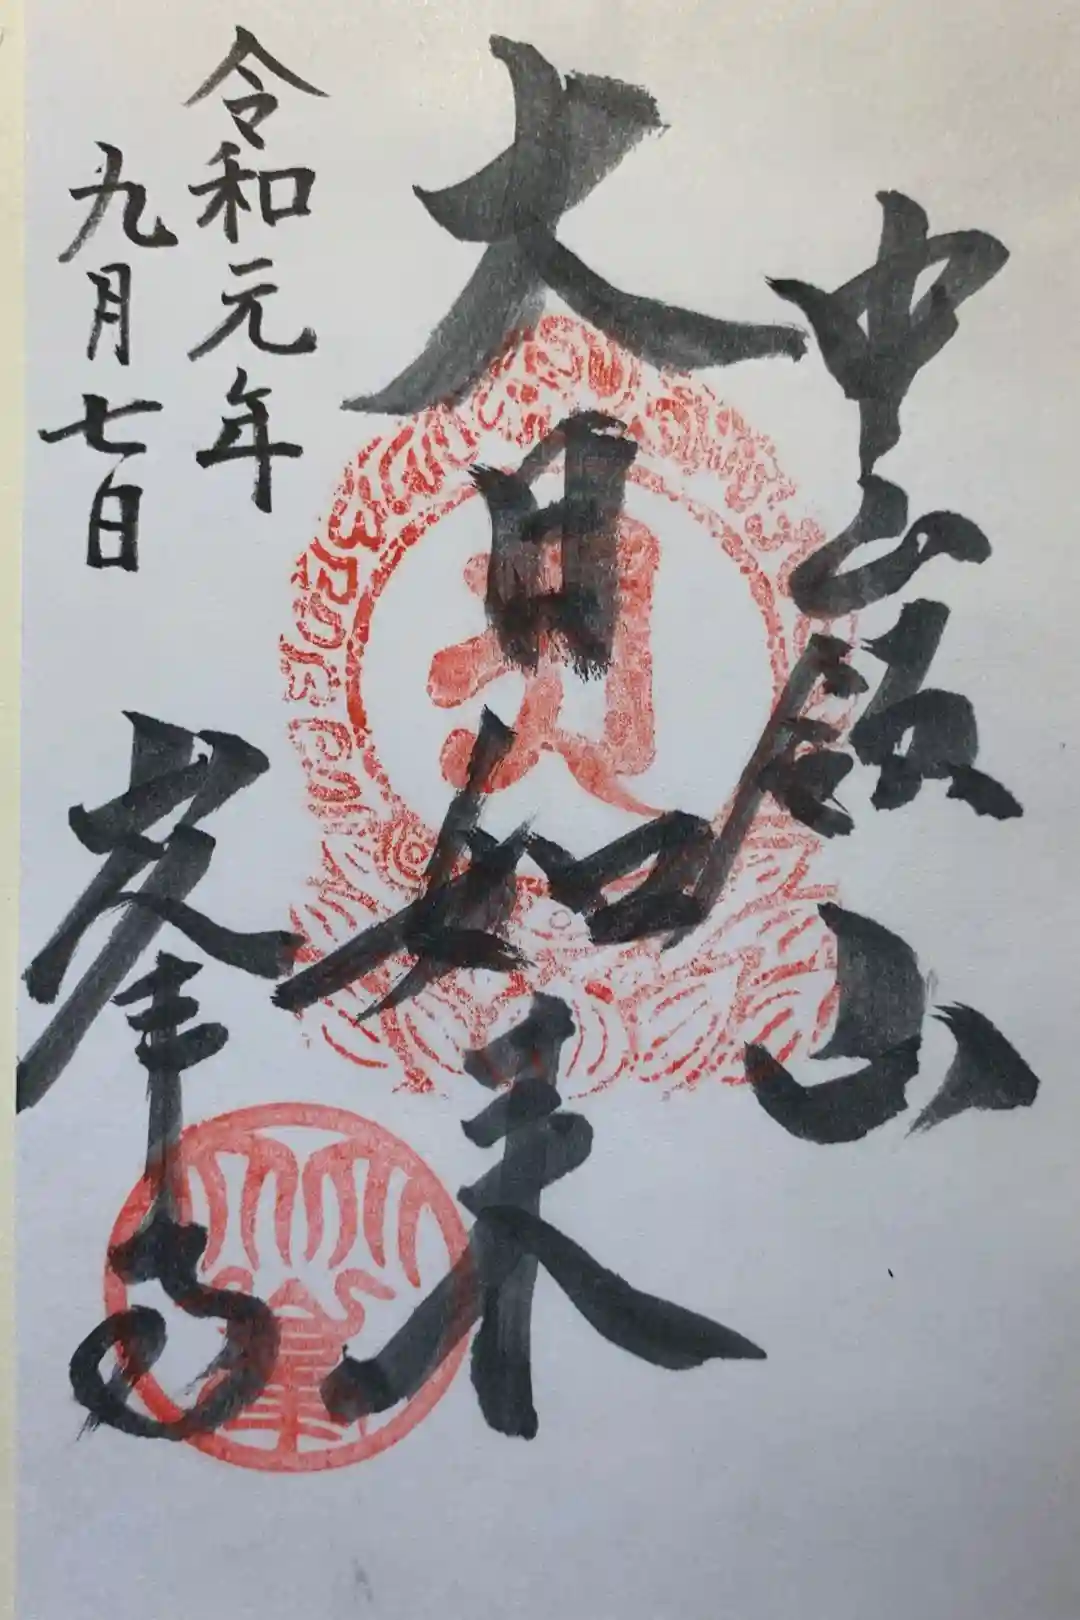 中嶺山
大日如来
令和元年
九月七日
峯寺